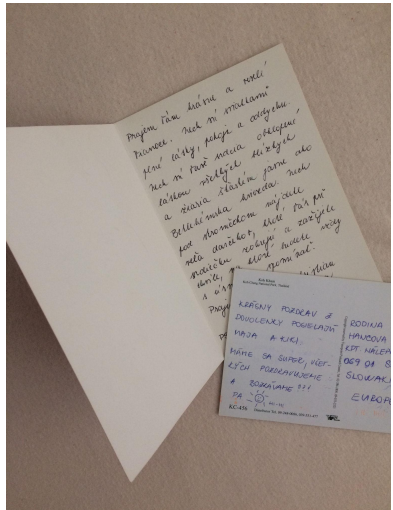 Prajem Vám krásne a veselé
Vianoce. Nech sú sviatkami
plné lásky, pokoja a oddychu.
Nech sú Vaše srdcia obklopené
láskou všetkých blízkych
a žiaria šťastím jasne ako
Betlehemská hviezda. Nech
pod stromčekom nájdete
veľa darčekov, ktoré Vás pri
srdiečku zohrejú a zažijete
chvíle, na ktoré budete vždy
s spomínať.
KRÁSNY POZDRAV Z
DOVOLENKY POSIELAJÚ
MAJA A KIKI.
MÁME SA SUPER, VŠET-
KÝCH POZDRAVUJEME
A BOZKÁVAME !!!
PA
KC-456
RODINA
HANCOVA
KPT. NÁLEP
069 01 S
SLOWAK
EUROPE